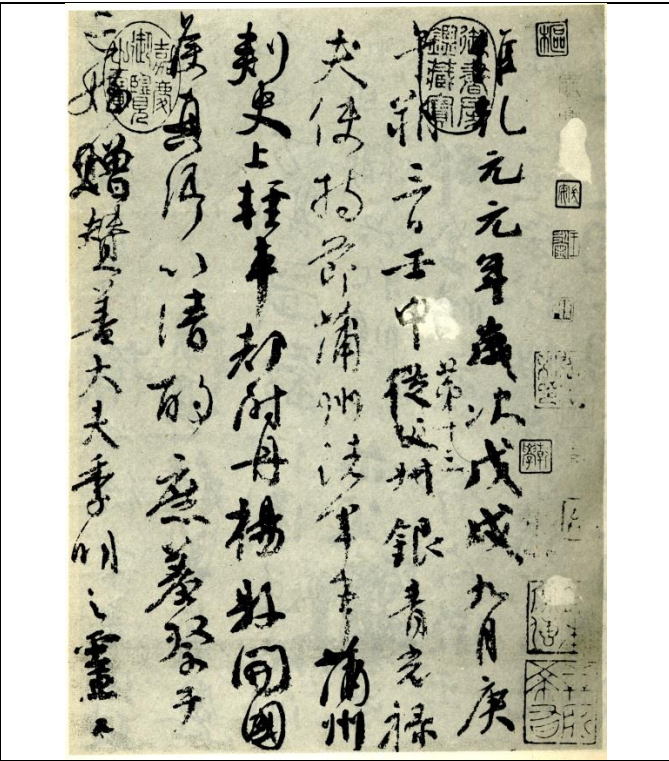 維乾元元年歲次戊戌九月庚
午朔三日壬申第十三從父叔銀青光祿
夫使持節蒲州諸軍事蒲州
刺史上輕車都尉丹楊縣開國
侯真卿以清酌庶羞祭于
亡姪贈贊善大夫季明之靈曰
御書房鑑藏寶
嘉慶御覽之寶
樞